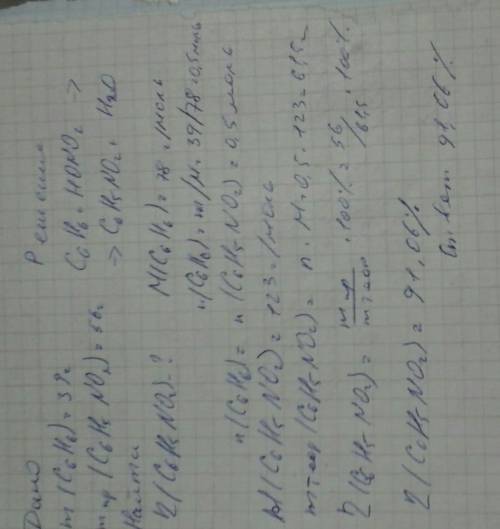 Дано
m(C6H6)=39г
m пр (C6H5NO2)=56г
Найти
η(C6H5NO2)-?
Решение
C6H6+HONO2 →
→ C6H5NO2+ H2O
M(C6H6)=78 г/моль
n(C6H6)=m/M=39/78=0,5моль
n(C6H6)=n(C6H5NO2)=0,5моль
M(C6H5NO2)=123г/моль
m теор(C6H5NO2)=n·M=0,5·123=61,5г
η(C6H5NO2)=m пр/m теор ·100%=56/61,5·100%
η(C6H5NO2)=91,06%
Ответ 91,06%